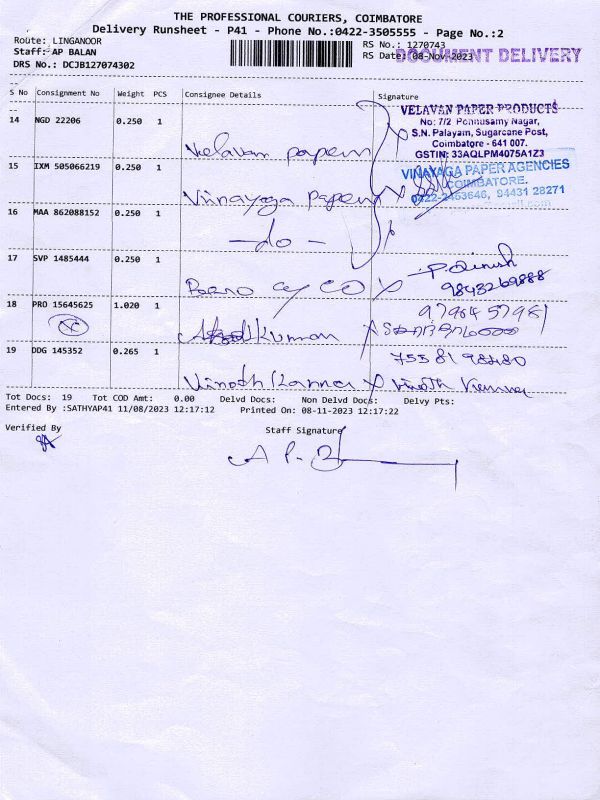 THE PROFESSIONAL COURIERS, COIMBATORE
Delivery Runsheet - P41 - Phone No.:0422-3505555 - Page No.:2
Route: LINGANOOR
RS No.: 1270743
Staff: AP BALAN
RS Date: 08-Nov-2023
DOCUMENT DELIVERY
DRS No.: DCJB127074302
S No Consignment No Weight PCS Consignee Details Signature
14 NGD 22206 0.250 1
Velavan papers
VELAVAN PAPER PRODUCTS
No: 7/2 Ponnusamy Nagar,
S.N. Palayam, Sugarcane Post,
Coimbatore - 641 007.
GSTIN: 33AQLPM4075A1Z3
15 IXM 505066219 0.250 1
Vinayaga papers
VINAYAGA PAPER AGENCIES
COIMBATORE.
0422-2453646, 94431 28271
16 MAA 862088152 0.250 1
- do -
17 SVP 1485444 0.250 1
P. Dinesh
9843269888
18 PRO 15645625 1.020 1
Kumar
19 DDG 145352 0.265 1
75581 98480
Vinoth Kannan
Tot Docs: 19 Tot COD Amt: 0.00 Delvd Docs: Non Delvd Docs: Delvy Pts:
Entered By :SATHYAP41 11/08/2023 12:17:12 Printed On: 08-11-2023 12:17:22
Verified By
Staff Signature
A P. B